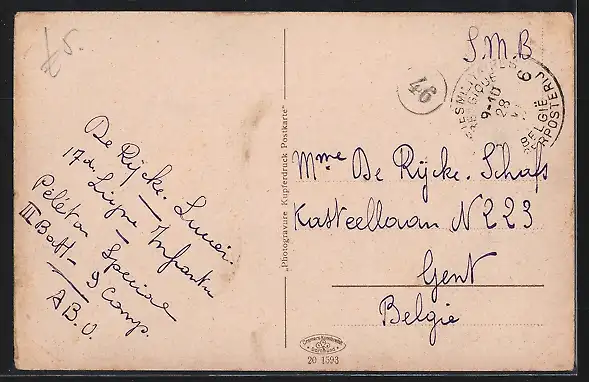 S.M.B
46
BELGIQUE
9-10
28
6
BELGIË
De Rijcke. Lucien
17d. Linie - Infanterie
Peleton Special
III Batt - 9 Comp.
A B.O.
"Photogravure Kupferdruck Postkarte"
Mme De Rijcke. Schafs
Kasteellaan N 223
Gent
België
20 1593